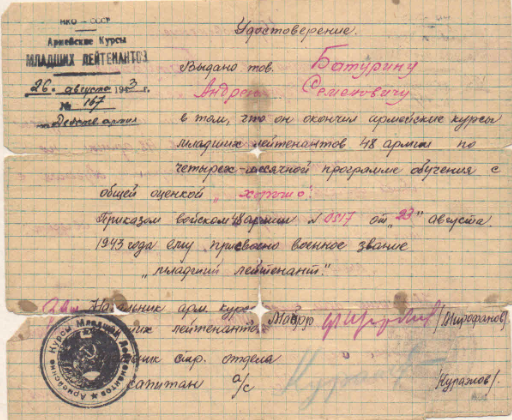 НКО - СССР
Армейские Курсы
МЛАДШИХ ЛЕЙТЕНАНТОВ
26 августа 1943 г.
№ 167
Действ. армия
Удостоверение.
Выдано тов. Батурину
Андрею Семеновичу
в том, что он окончил армейские курсы
младших лейтенантов 48 армии по
четырех-месячной программе обучения с
общей оценкой "хорошо"
Приказом войскам 48 армии № 0517 от "23" августа
1943 года ему присвоено военное звание
"младший лейтенант."
Начальник арм. курсов
лейтенантов Майор /Митрофанов/
стр. отдела
капитан а/с /Куражов/
Армейские Курсы Младших Лейтенантов